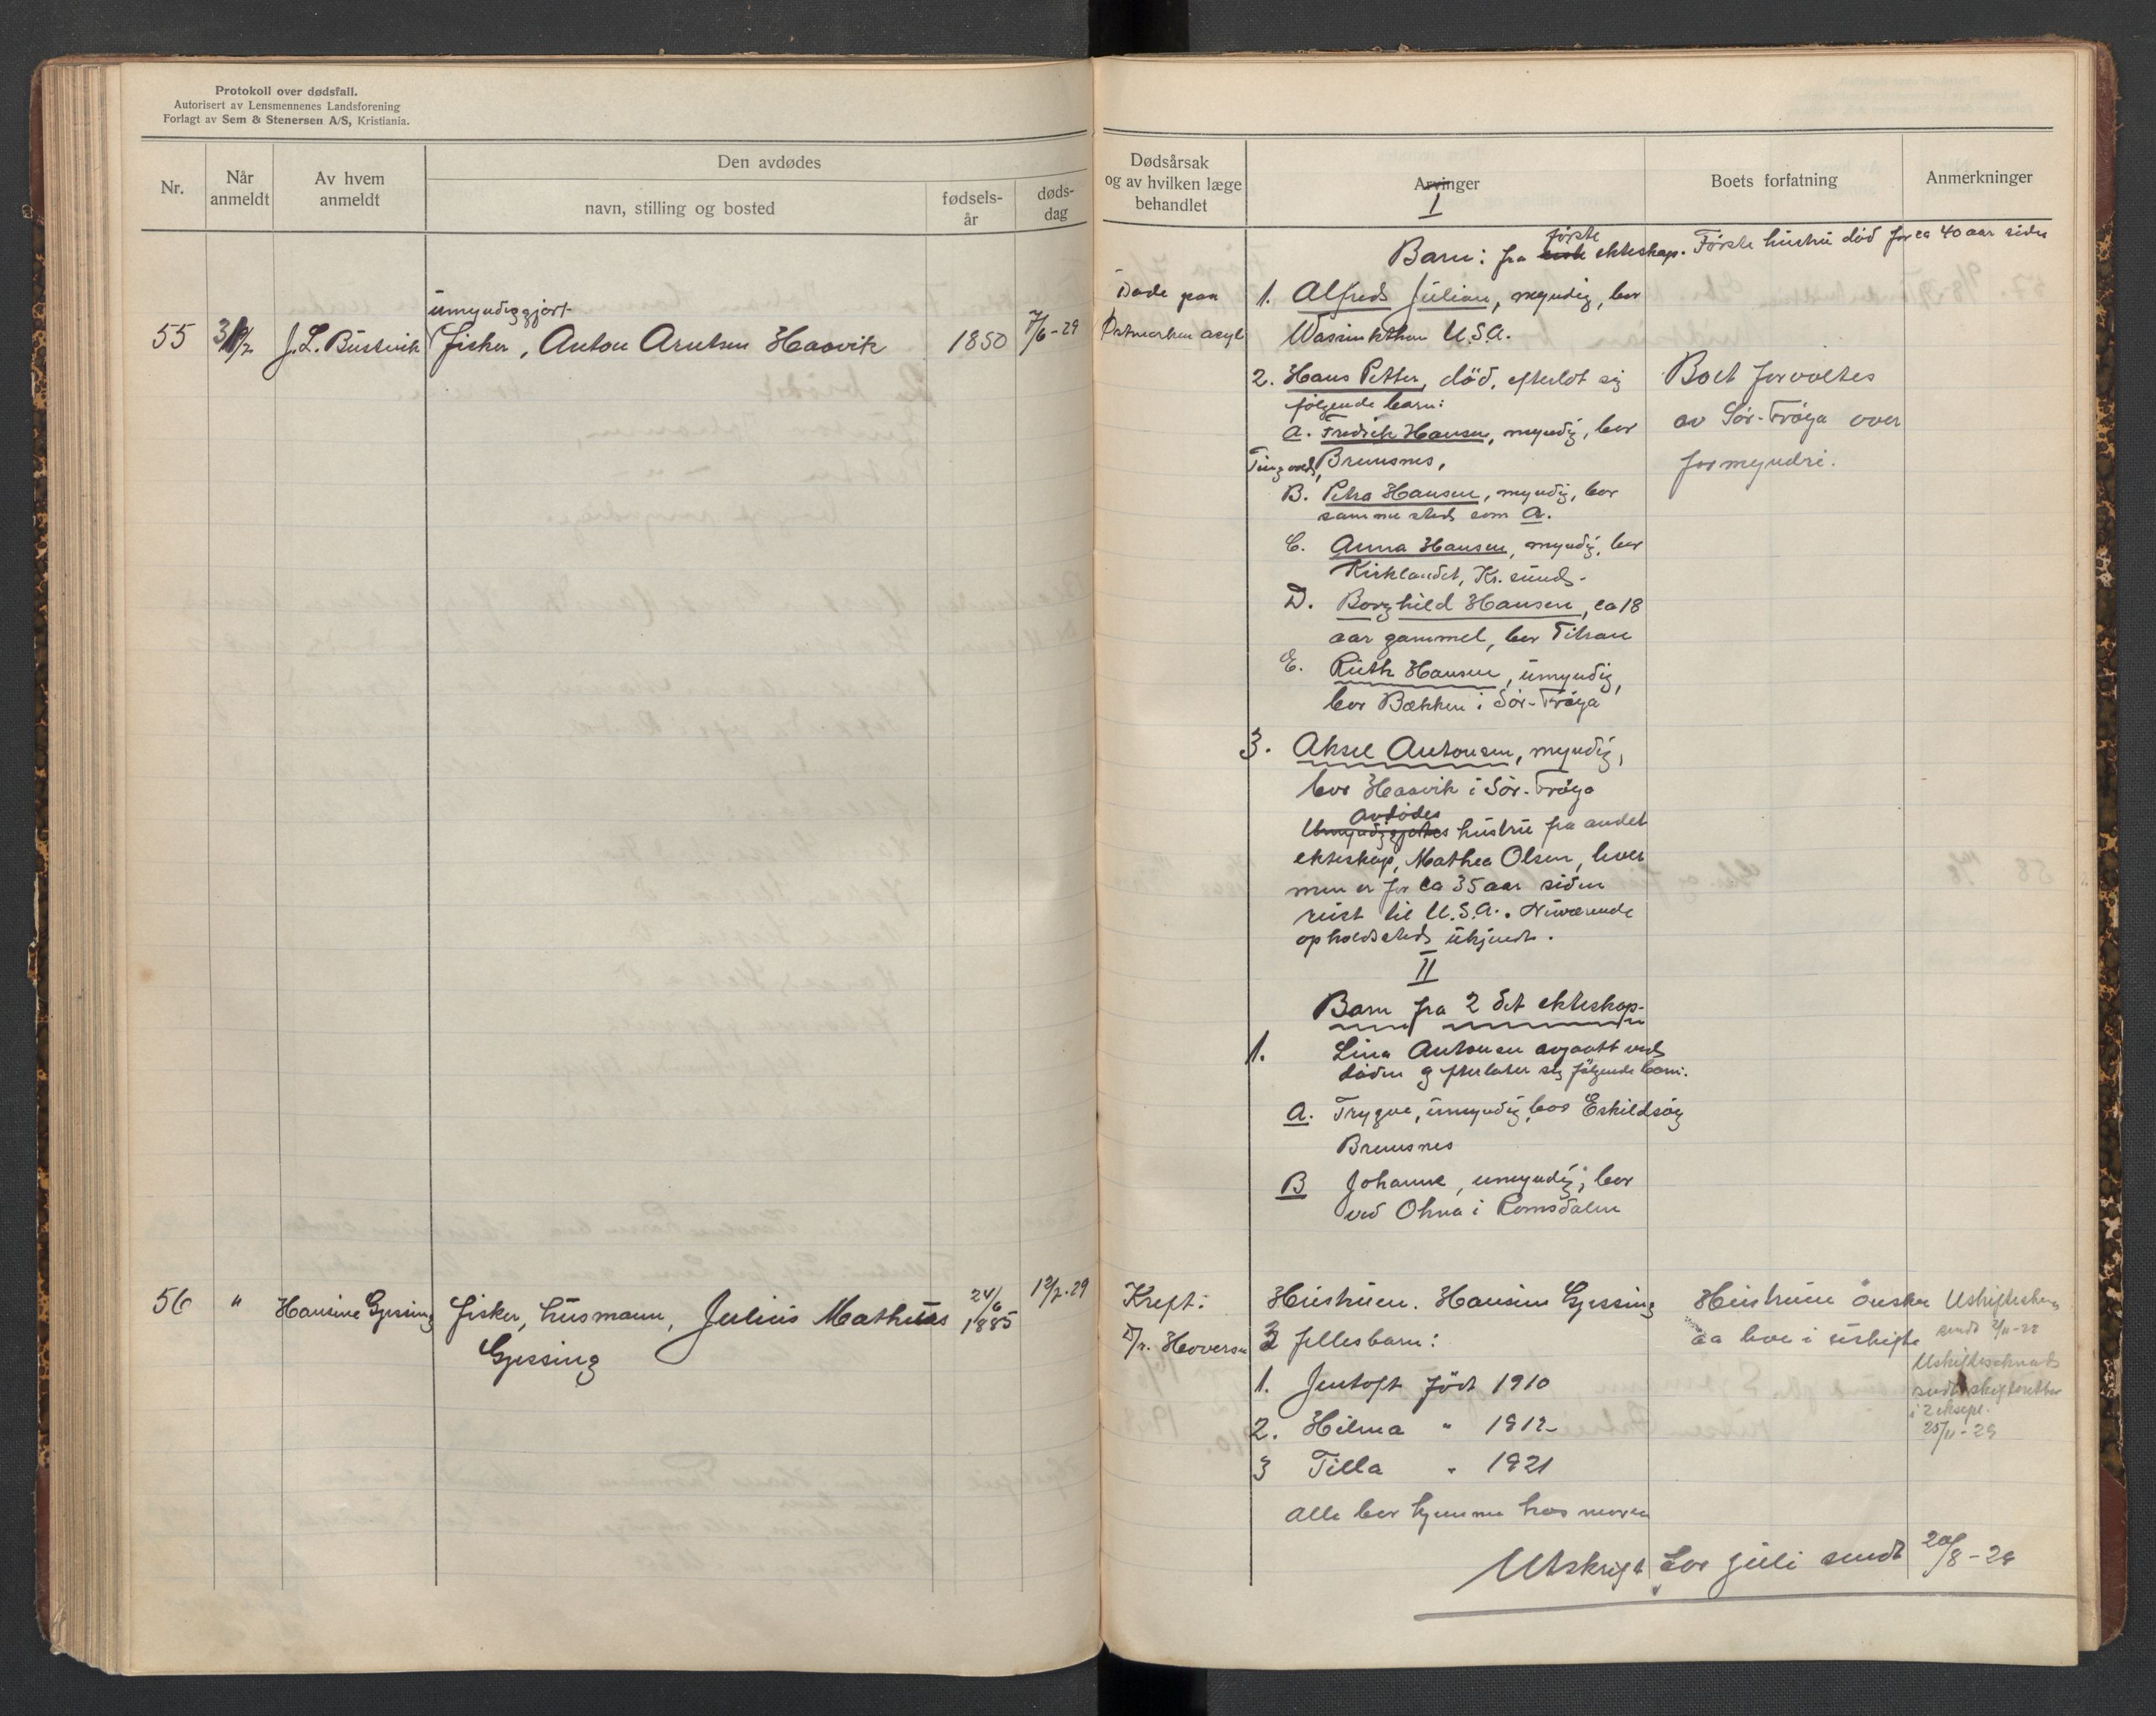 Protokoll over dødsfall.
Autorisert av Lensmennenes Landsforening
Forlagt av Sem & Stenersen A/S, Kristiania.
Nr.
Når
anmeldt
Av hvem
anmeldt
Den avdødes
navn, stilling og bosted
fødsels-
år
døds-
dag
Dødsårsak
og av hvilken læge
behandlet
Arvinger
Boets forfatning
Anmerkninger
I
første
Barn: fra ekteskap. Første hustru død for ca 40 aar siden
umyndiggjort
55 J. L. Bustvik fisker, Anton Arntsen Haavik 1850 7/6-29
Døde paa
Østmarken asyl
1. Alfred Julian, myndig, bor
Wassinkthon U.S.A.
2. Hans Petter, død, efterlot sig
følgende barn:
A. Fredrik Hansen, myndig, bor
Tingvold, Bremsnes,
B. Petra Hansen, myndig, bor
samme sted som A.
C. Anna Hansen, myndig, bor
Kirklandet, Kr. sund.
D. Borghild Hansen, ca 18
aar gammel, bor Titran
E. Ruth Hansen, umyndig,
bor Bekken i Sør-Frøya
3. Aksel Antonsen, myndig,
bor Haavik i Sør-Frøya
avdødes
Umyndiggjortes hustru fra andet
ekteskap, Mathea Olsen, lever
men er for ca 35 aar siden
reist til U.S.A.. Nuværende
opholdssted ukjendt.
Boet forvaltes
av Sør-Frøya over
formyndri.
II
Barn fra 2 det ekteskap.
1. Lina Antonsen avgaatt ved
døden og efterlater sig følgende barn:
A. Trygve, umyndig, bor Eskildsøy
Bremsnes
B Johanne, umyndig, bor
ved Ohna i Romsdalen
56 " Hansine Gjessing fisker, husmann, Julius Mathias 24/6 1885 12/7-29
Gjessing
Kreft:
Dr. Hoversen
Hustruen. Hansine Gjessing
3 fellesbarn:
1. Jentoft født 1910
2. Hilma " 1912
3 Tilla " 1921
Alle bor hjemme hos moren
Hustruen ønsker
aa bo i uskifte
sendt skifteretten
i 2 eksepl.
25/11-29
Utskrift for juli sendt 20/8-29